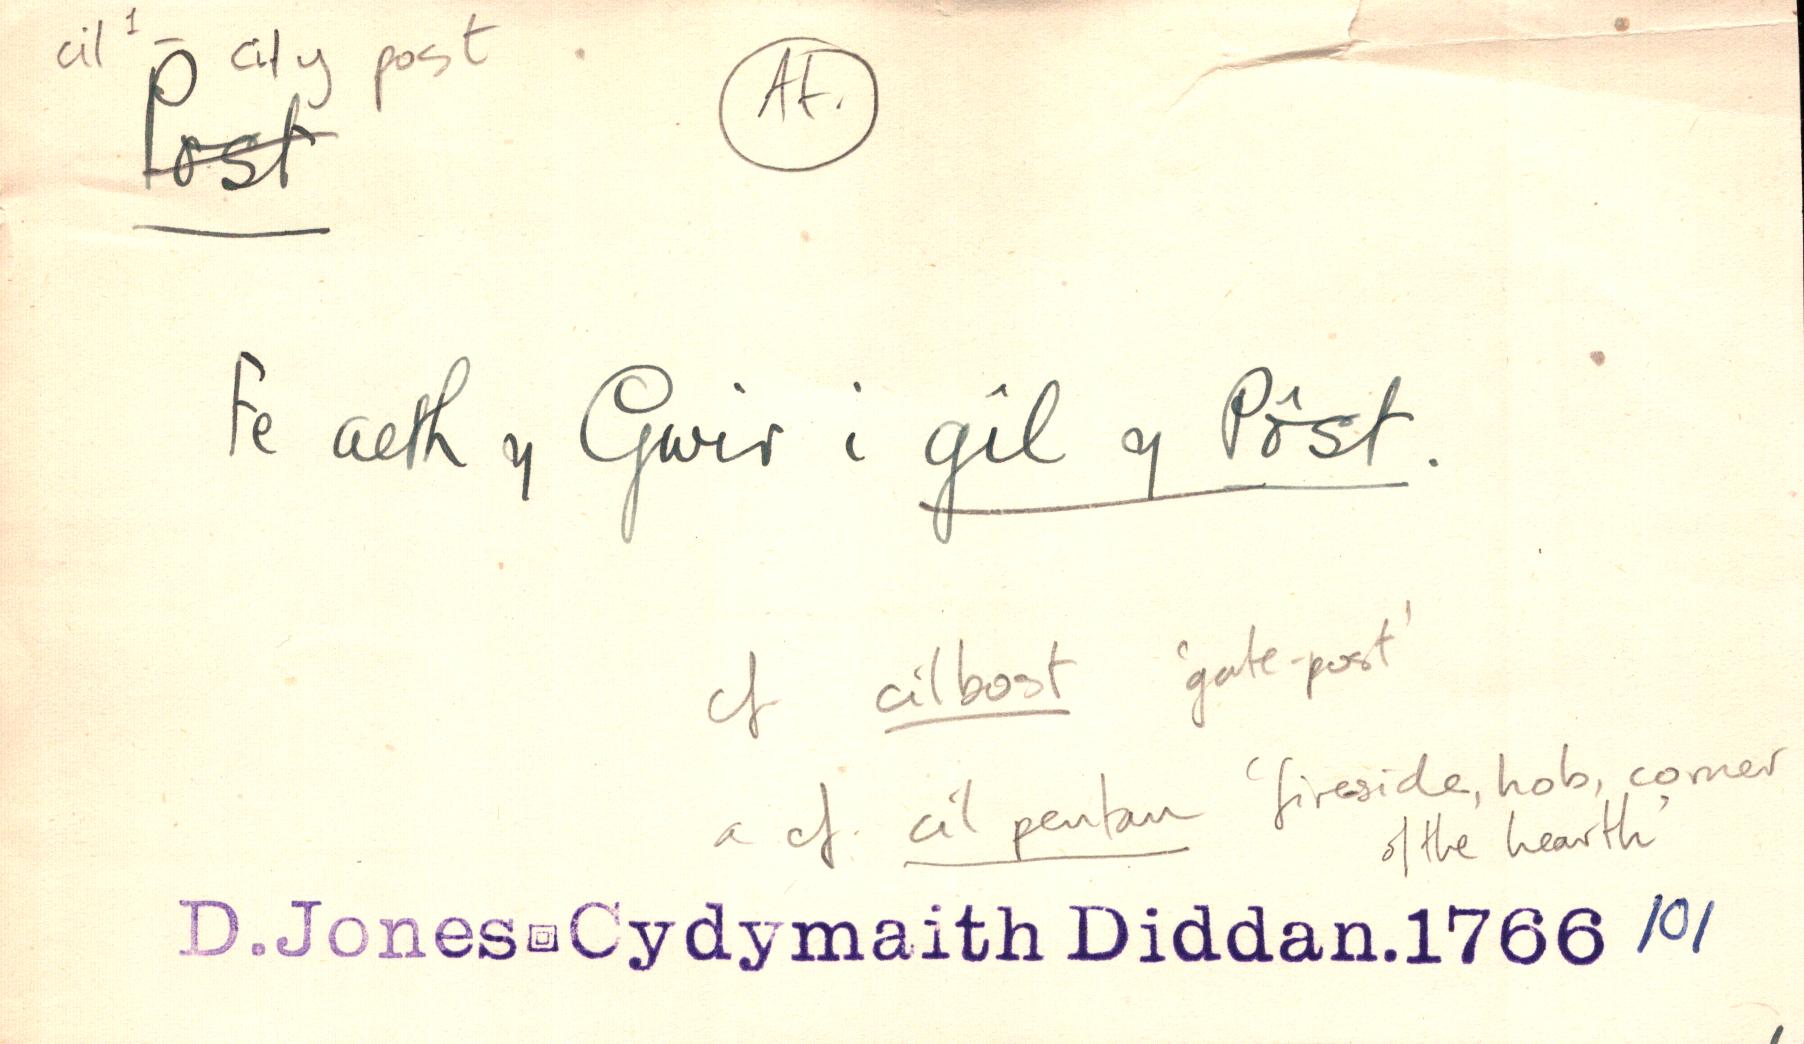 cil¹ – cil y post
Post
AF.
Fe aeth y Gwir i gîl y Pôst.
cf cilbost 'gate-post'
a cf. cil pentan 'fireside, hob, corner
of the hearth'
D.Jones Cydymaith Diddan.1766 101